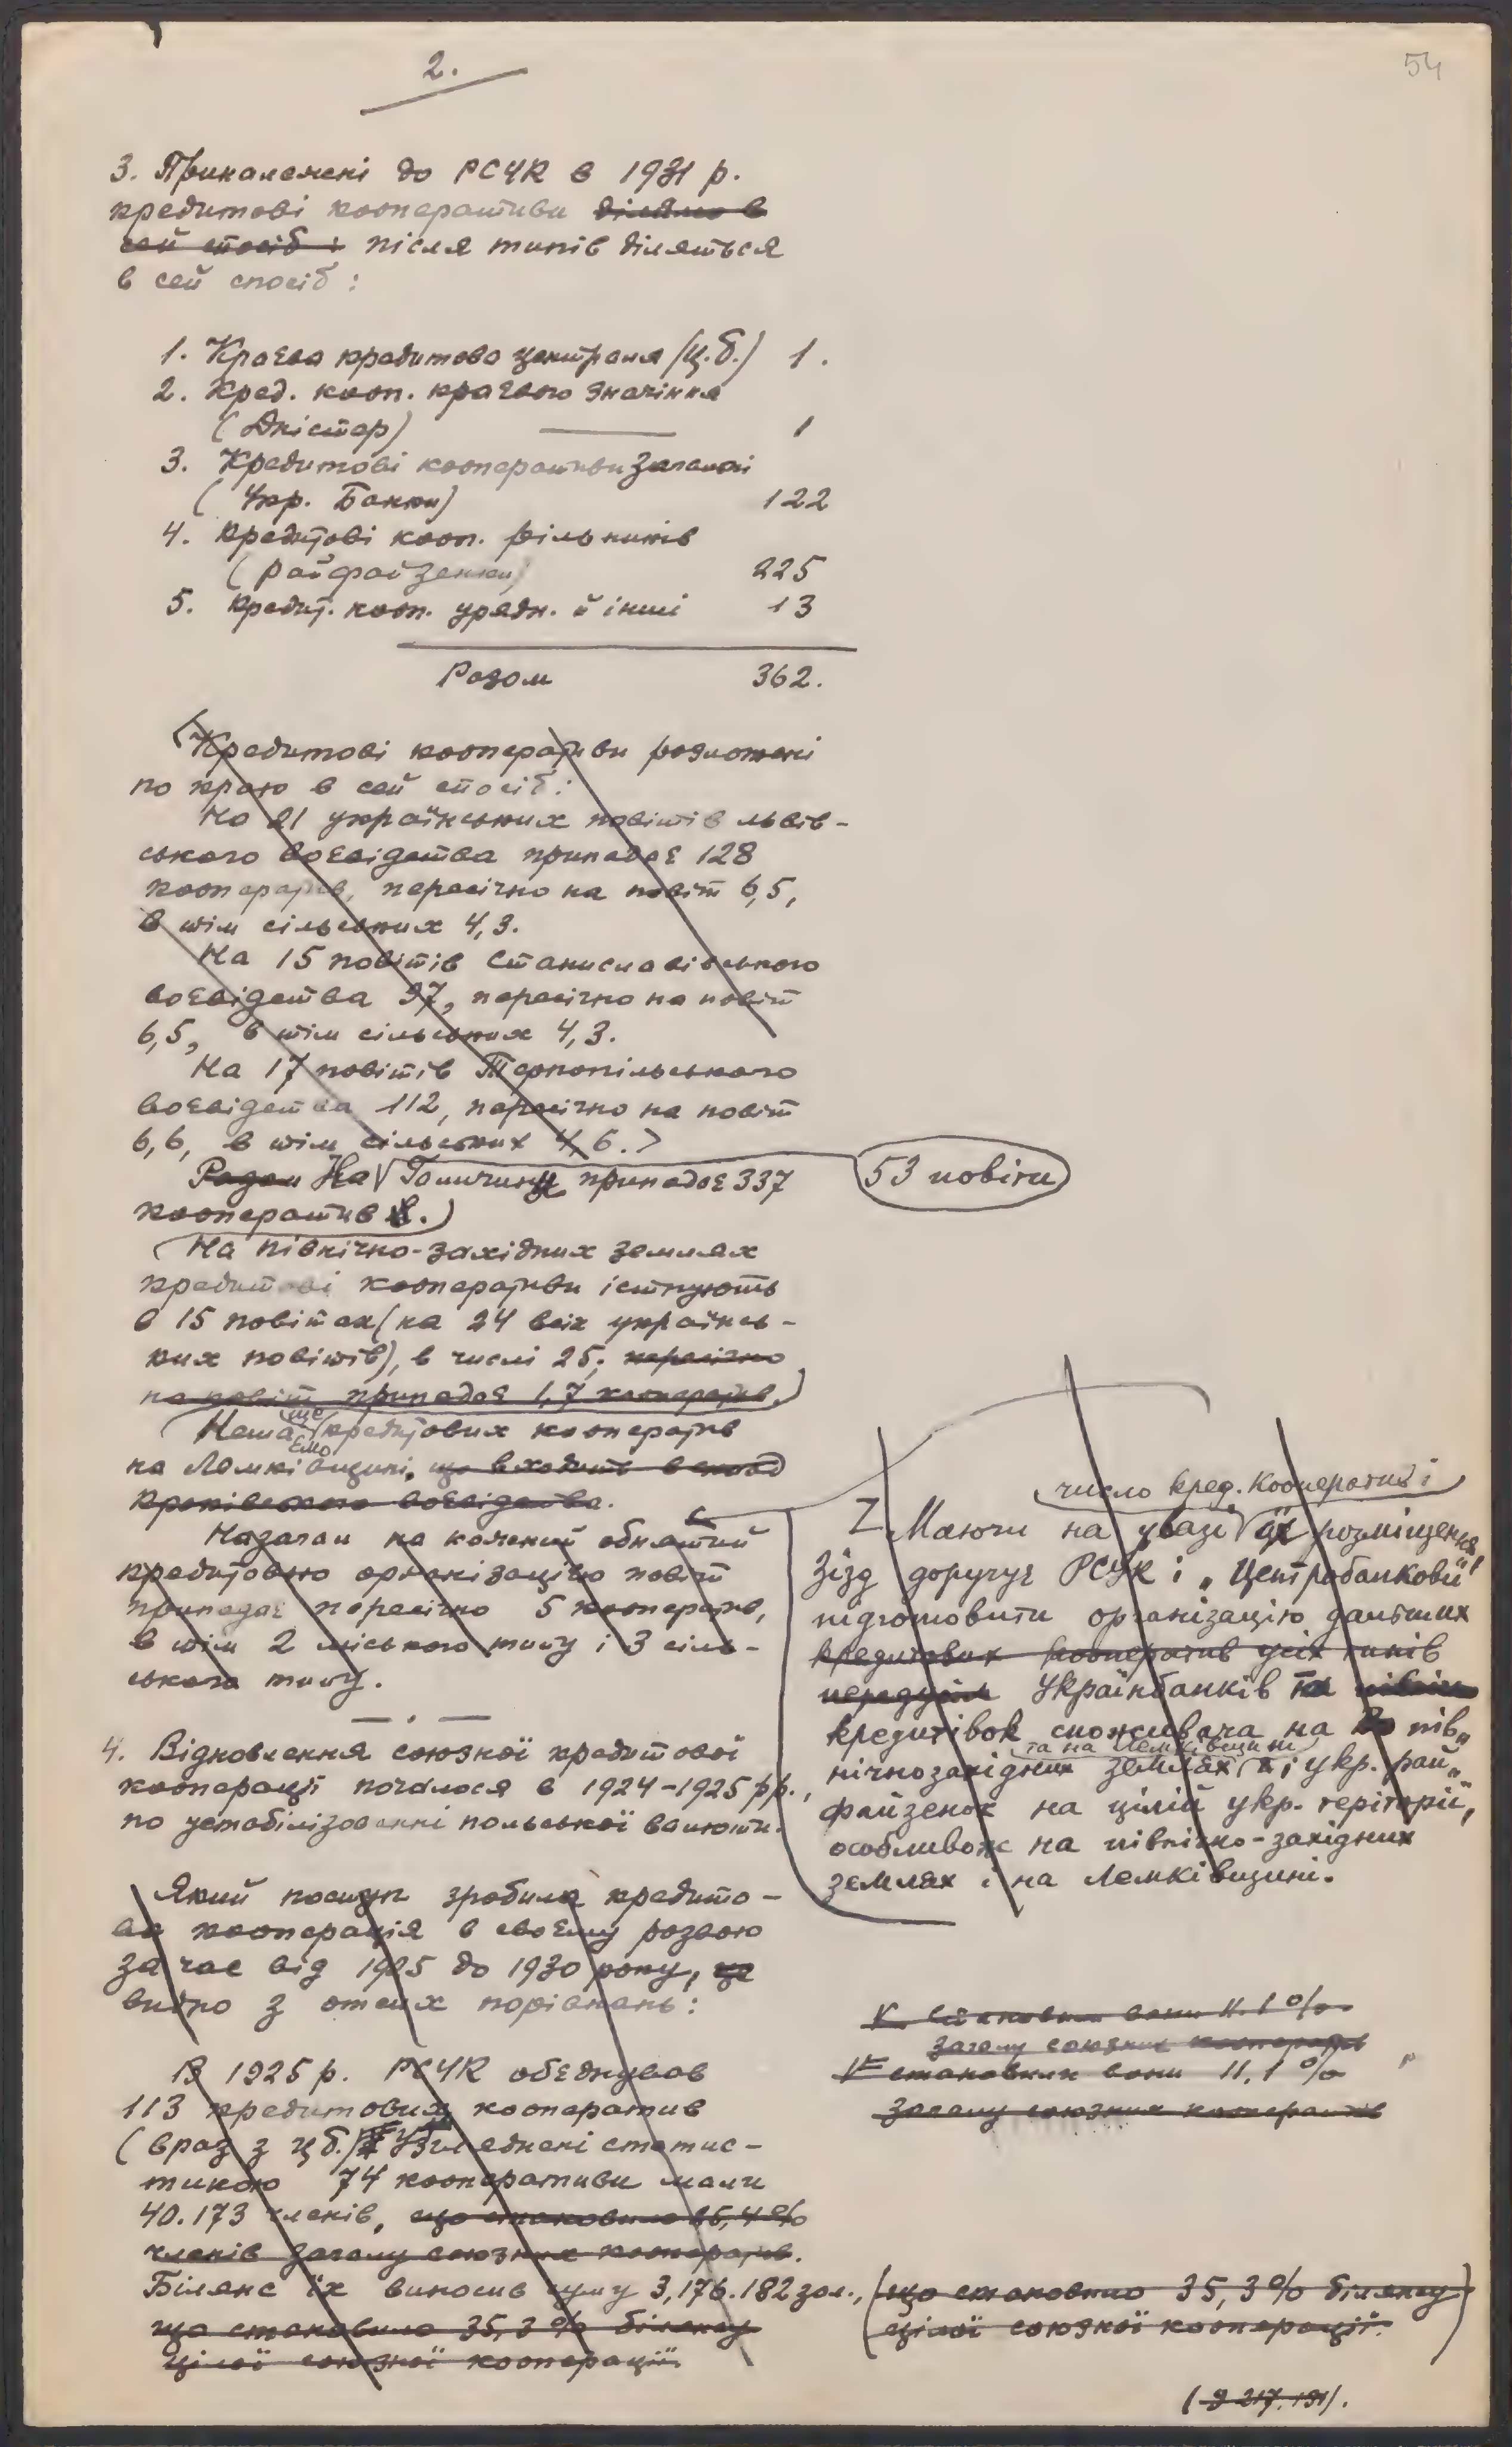 2.
54
3. Приналежні до РСУК в 1931 р.
кредитові кооперативи ділимо в
сей спосіб: після типів діляться
в сей спосіб:
1. Краєва кредитова централя (Ц.б.) 1.
2. Кред. кооп. краєвого значіння
(Дністер) 1
3. Кредитові кооперативи загальні
(Укр. Банки) 122
4. Кредитові кооп. рільників
(райфайзенки) 225
5. Кредит. кооп. урядн. й інші 13
Разом 362.
Кредитові кооперативи розположені
по краю в сей спосіб:
На 21 українських повітів львів-
ського воєвідства припадає 128
кооператив, пересічно на повіт 6,5,
в тім сільських 4,3.
На 15 повітів Станиславівського
воєвідства 97, пересічно на повіт
6,5, в тім сільських 4,3.
На 17 повітів Тернопільського
воєвідства 112, пересічно на повіт
6,6, в тім сільських 4,6.
Разом На Галичину припадає 337
53 повіти
кооператив.)
(На північно-західних землях
кредитові кооперативи істнують
в 15 повітах (на 24 всіх українсь-
ких повітів), в числі 25; пересічно
на повіт припадає 1,7 кооператив.)
ще
(Нема кредитових кооператив
на Лемківщині, що входить в склад
краківського воєвідства.
Назагал на кожний обнятий
кредитовою організацією повіт
припадає пересічно 5 кооператив,
в тім 2 міського типу і 3 сіль-
ського типу.
4. Відновлення союзної кредитової
кооперації почалося в 1924-1925 рр.,
по устабілізованні польської валюти.
Який поступ зробила кредито-
ва кооперація в своєму розвою
за час від 1925 до 1930 року, це
видно з отсих порівнань:
В 1925 р. РСУК обєднував
113 кредитових кооператив
(враз з Цб.) Узгляднені статис-
тикою 74 кооперативи мали
40.173 членів, що становило 35,4%
членів загалу союзних кооператив.
Білянс їх виносив суму 3,176.182 зол.,
що становило 35,3% білянсу
цілої союзної кооперації.
число кред. кооператив і
Маючи на увазі їх розміщення,
Зїзд доручує РСУК і „Центробанкови"
підготовити організацію дальших
кредитових кооператив усіх типів
передусім Українбанків та
кредитівок споживача на пів„
та на Лемківщині
нічнозахідних землях і укр. рай„
файзенок на цілій укр. території,
особливож на північно-західних
землях і на Лемківщині.
становили вони 11.1%
загалу союзних кооператив
становили вони 11,1%
загалу союзних кооператив
(що становило 35,3% білянсу
цілої союзної кооперації.)
(9 217.191).